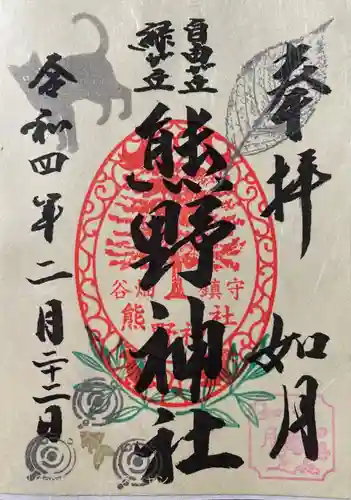 奉拝
如月
自由ヶ丘
緑ヶ丘
熊野神社
谷畑 鎮守
熊野神社
令和四年二月二十二日